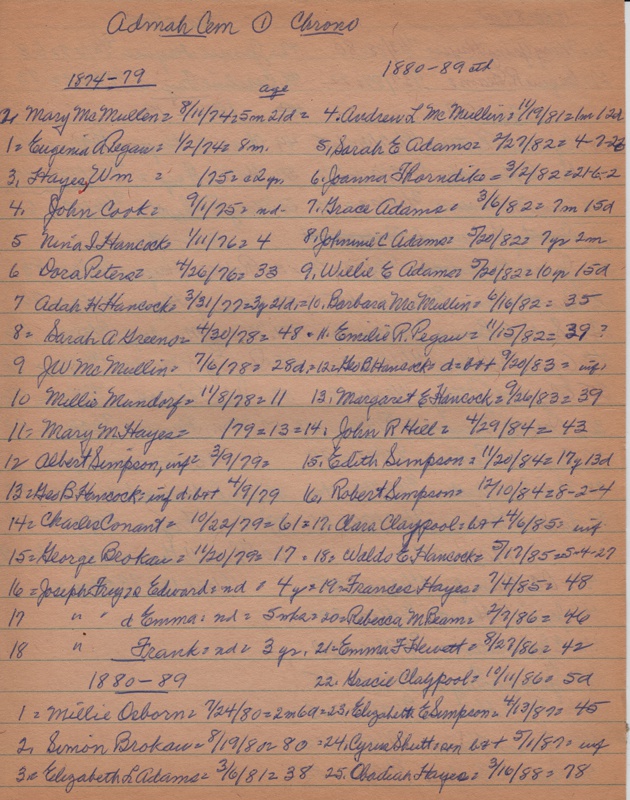 Admah Cem ① Chrono
1874-79 age 1880-89 
2, Mary McMullen = 8/11/74 = 5m 21d = 4. Andrew L McMullin = 11/19/81 = 1m 12d
1 = Eugenia A Pegau = 1/2/74 = 8m. 5, Sarah E Adams = 2/27/82 = 4-7-26
3, Hayes, Wm = /75 = 2 yr. 6. Joanna Thorndike = 3/2/82 = 21-6-2
4, John Cook = 9/1/75 = nd- 7. Grace Adams = 3/6/82 = 7m 15d
5 Nina I Hancock 1/11/76 = 4 8. Johnnie C Adams = 5/20/82 = 7yr 2m
6 Dora Peters = 4/26/76 = 33 9, Willie E Adams = 5/20/82 = 10yr 15d
7 Adah H. Hancock = 3/31/77 = 3y 21d, = 10, Barbara McMullin = 6/16/82 = 35
8 = Sarah A Greeno = 4/30/78 = 48 - 11. Emilie R. Pegau = 11/15/82 = 39 ?
9 JW McMullin = 7/6/78 = 28d, = 12 = Geo B Hancock = d = b+ 9/20/83 = inf
10 Millie Mundorf = 11/8/78 = 11 13, Margaret E Hancock = 9/26/83 = 39
11 = Mary M. Hayes = /79 = 13 = 14, John R Hill = 4/29/84 = 43
12 Albert Simpson, inf = 3/9/79 = 15. Edith Simpson = 11/20/84 = 17y 13d
13 = Geo B Hancock = inf d, b+ 4/9/79 16, Robert Simpson = 12/10/84 = 8-2-4
14 = Charles Conant = 10/22/79 = 61 = 17. Clara Claypool = b+ 4/6/85 = inf
15 = George Brokaw = 11/20/79 = 17 = 18 = Waldo E. Hancock = 5/17/85 = 5-4-27
16 = Joseph Edward = nd = 4 y = 19 = Frances Hayes = 7/4/85 = 48
17 " " d Emma = nd = 5 wks = 20 = Rebecca M Beam = 2/7/86 = 46
18 " Frank = nd = 3 yr. 21 = Emma F Hewett = 8/27/86 = 42
1880-89 22. Gracie Claypool = 10/11/86 = 5d
1 = Millie Osborn = 7/24/80 = 2m 6d = 23, Elizabeth E Simpson = 4/13/87 = 45
2, Simon Brokaw = 8/19/80 = 80 = 24, Cyrus Shutt = son b+ 5/1/87 = inf
3 = Elizabeth L Adams = 3/6/81 = 38 25. Obadiah Hayes = 3/16/88 = 78